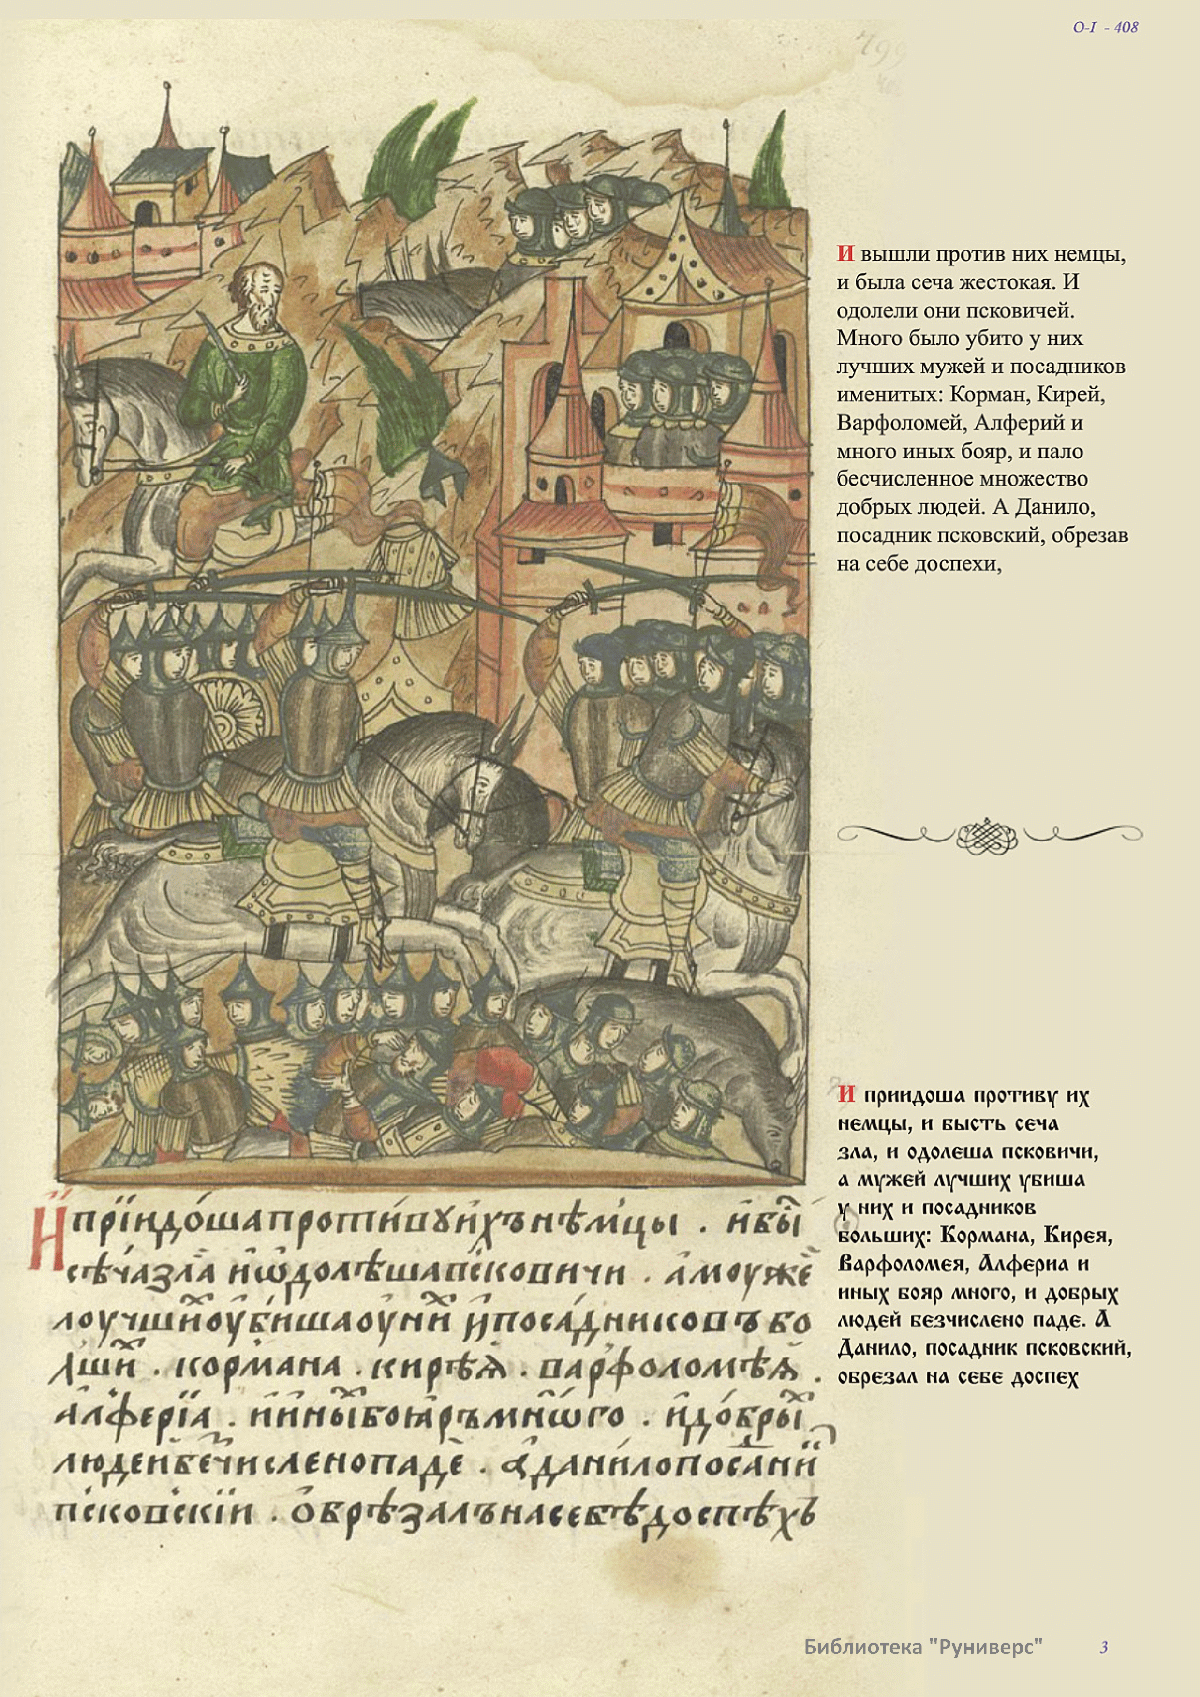 O-I - 408
И вышли против них немцы,
и была сеча жестокая. И
одолели они псковичей.
Много было убито у них
лучших мужей и посадников
именитых: Корман, Кирей,
Варфоломей, Алферий и
много иных бояр, и пало
бесчисленное множество
добрых людей. А Данило,
посадник псковский, обрезав
на себе доспехи,
И приидоша противу их
немцы, и бысть сеча
зла, и одолеша псковичи,
а мужей лучших убиша
у них и посадников
больших: Кормана, Кирея,
Варфоломея, Алфериа и
иных бояр много, и добрых
людей безчислено паде. А
Данило, посадник псковский,
обрезал на себе доспех
И҆прїидо́шапроти́вꙋи́хънѣ́мцы . и҆бы
сѣ́чазла̀ и҆ѡ҆долѣ́шапсковичи . а҆моужѐ
лоучши оу҆би́шаоу҆ни и҆поса́дниковъбо
лши . кормана . кирѣѧ . варфоломѣѧ .
а҆лферїа . и҆и҆ныбоꙗръмнѡго . и҆до́бры
людеибечисленопадѐ . а҆дани́лопоса́ни
пско́вскїи . ѡ҆брѣ́залънасебѣ̀доспѣ́хъ
Библиотека "Руниверс"
3